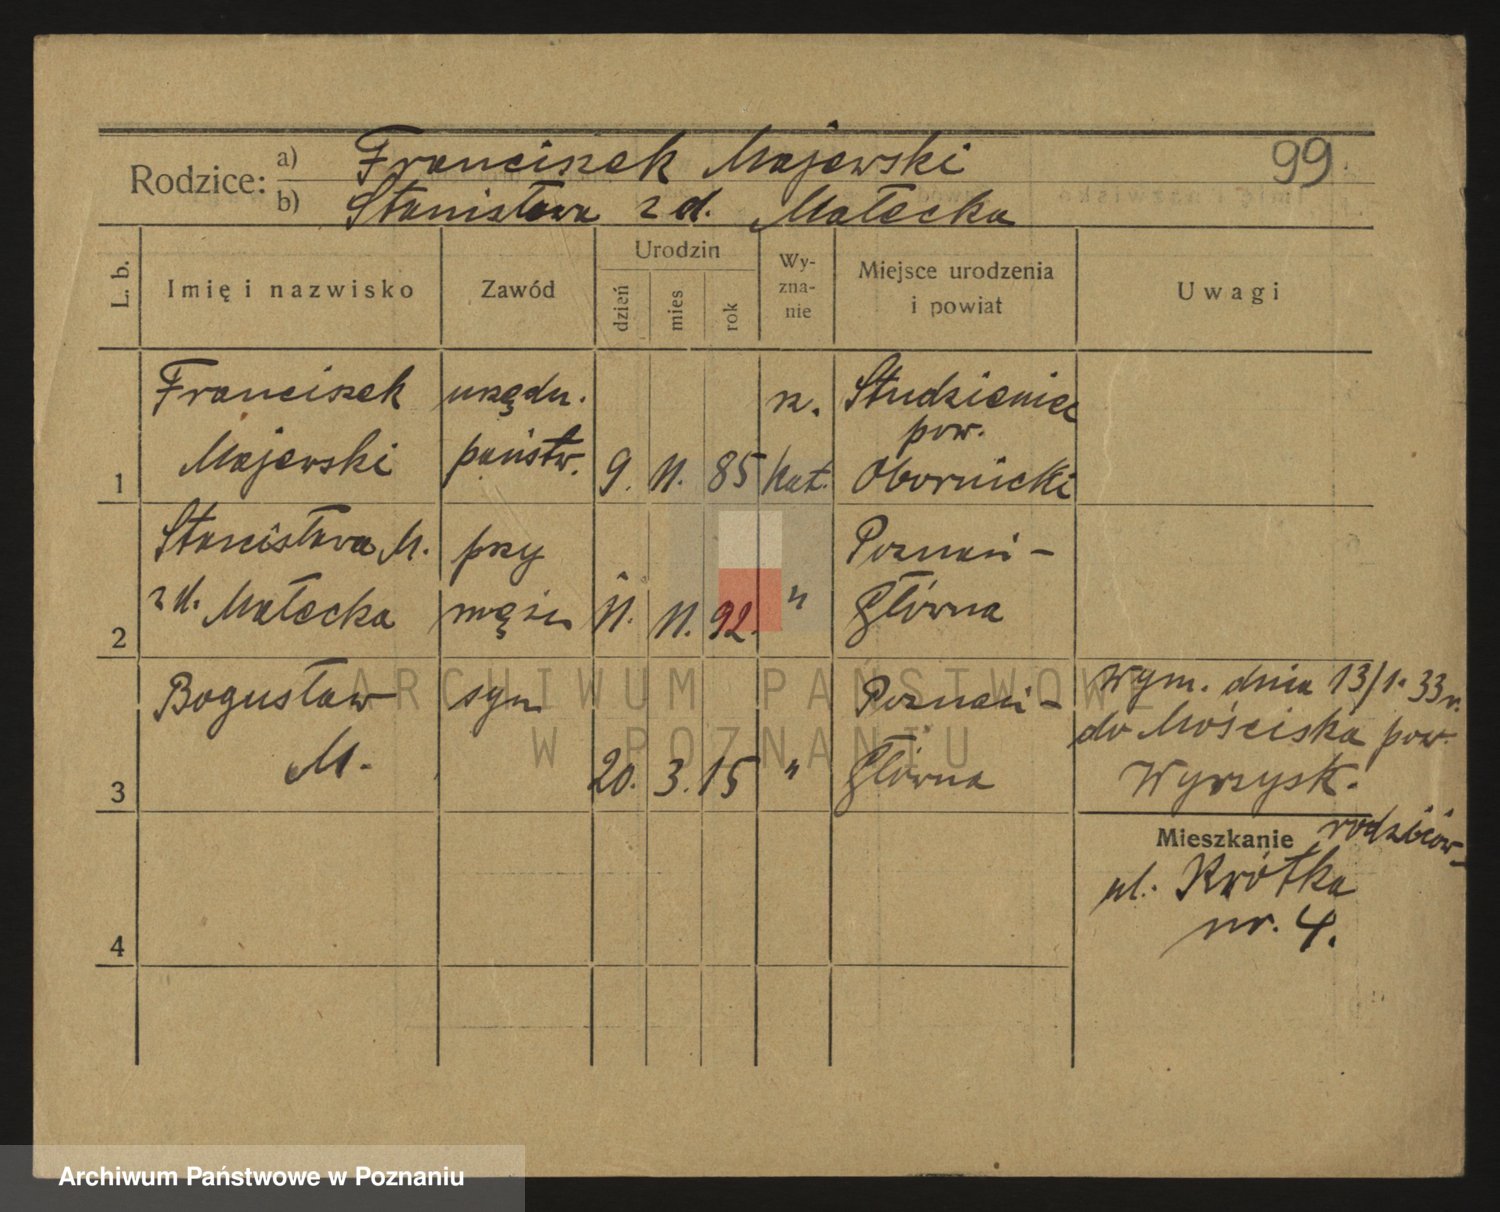 99
Rodzice: a) Franciszek Majewski
b) Stanisława z d. Małecka
L. b. Imię i nazwisko Zawód Urodzin dzień mies rok Wy-zna-nie Miejsce urodzenia i powiat Uwagi
1 Franciszek Majewski urzędn. państw. 9. 11. 85 rz. kat. Studzieniec pow. Obornicki
2 Stanisława M. z d. Małecka przy mężu 11. 11. 92. " Poznań - Główna
3 Bogusław M. syn 20. 3. 15 " Poznań - Główna Wym. dnia 13/1. 33 r. do Mościska pow. Wyrzysk.
4
Mieszkanie rodziców -
ul. Krótka
nr. 4.
ARCHIWUM PAŃSTWOWE
W POZNANIU
Archiwum Państwowe w Poznaniu